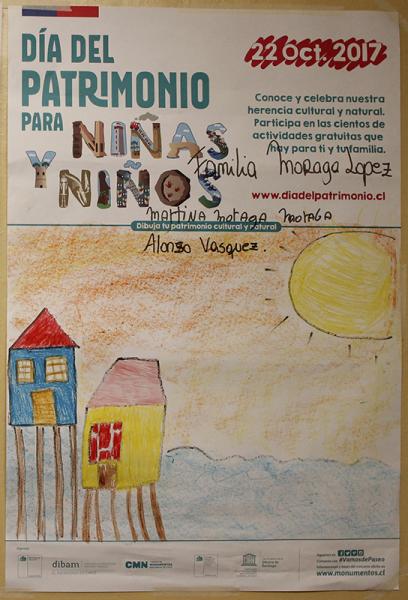 DÍA DEL
PATRIMONIO
PARA NIÑAS
Y NIÑOS
22 Oct. 2017
Conoce y celebra nuestra
herencia cultural y natural.
Participa en las cientos de
actividades gratuitas que
hay para ti y tu familia.
Familia Moraga Lopez
www.diadelpatrimonio.cl
Martina moraga moraga
Dibuja tu patrimonio cultural y natural
Alonzo Vasquez.
dibam
CMN
#VamosdePaseo
www.monumentos.cl